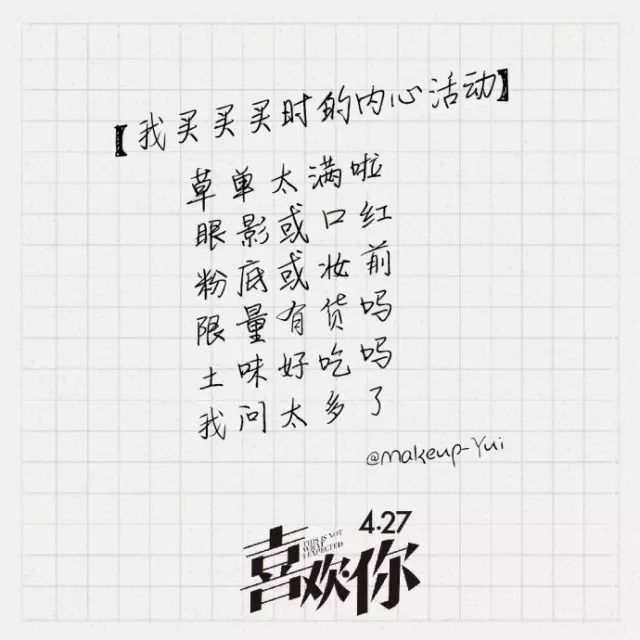 【我买买买时的内心活动】
草单太满啦
眼影或口红
粉底或妆前
限量有货吗
土味好吃吗
我问太多了
@makeup-Yui
4.27
喜欢·你
THIS IS NOT
WHAT
I EXPECTED